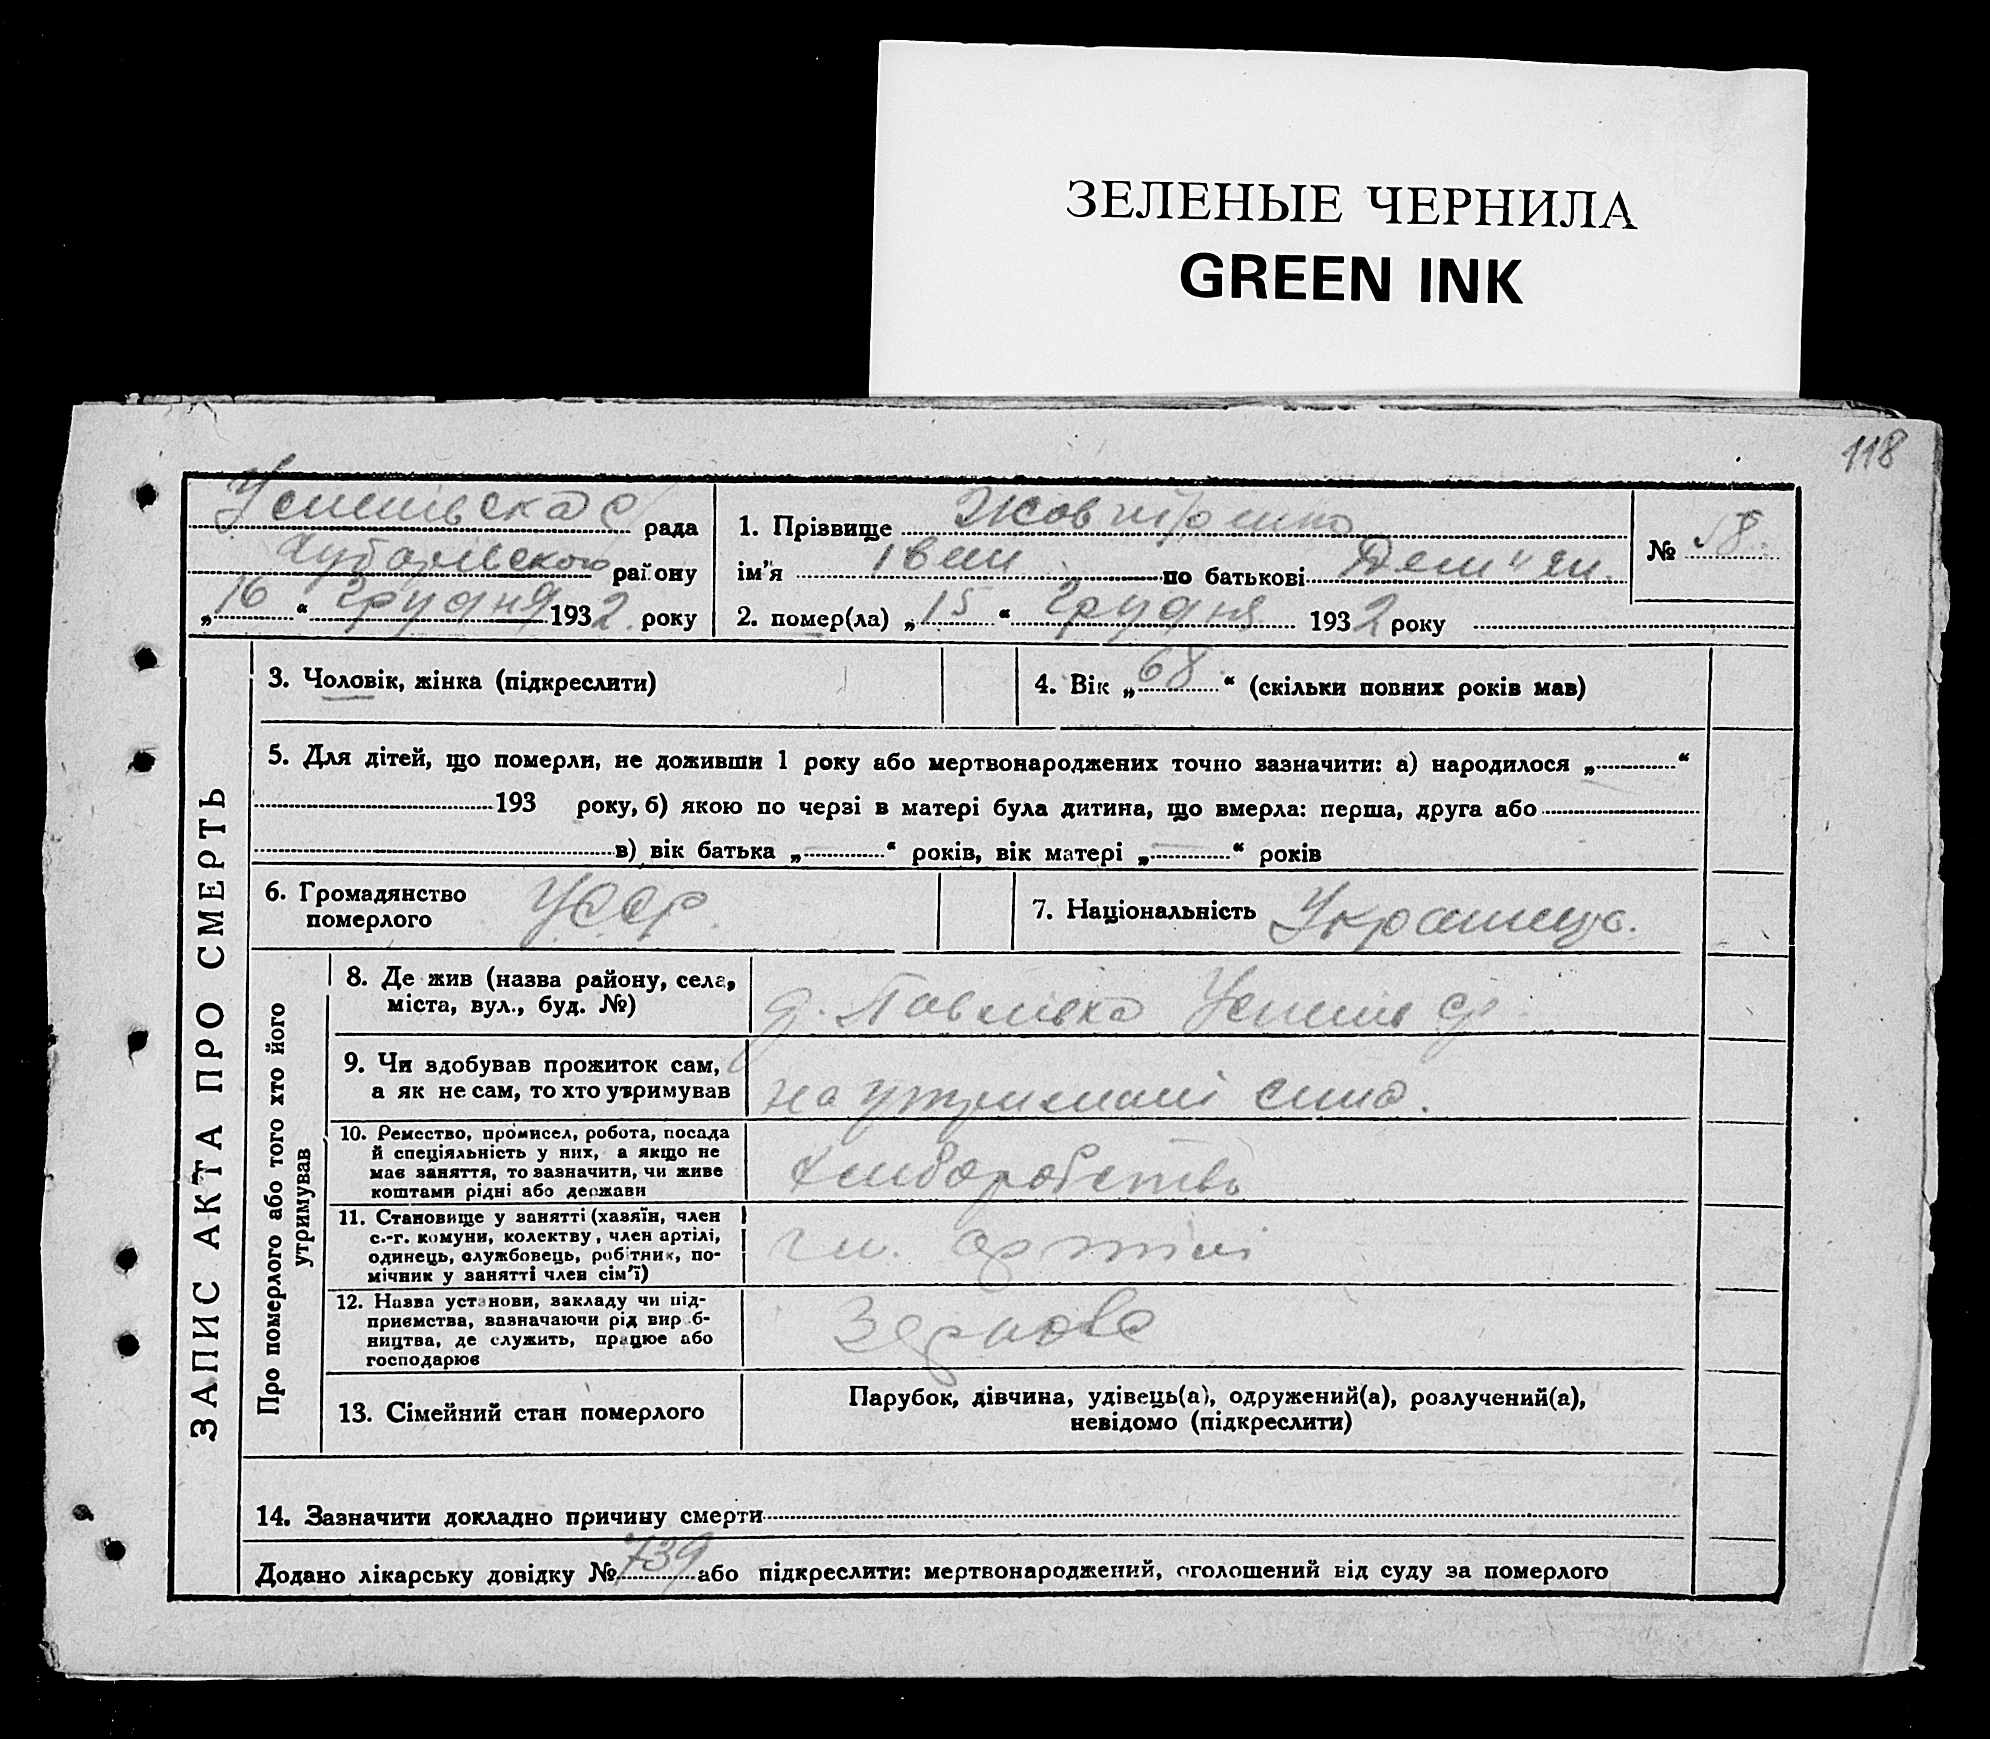 ЗЕЛЕНЫЕ ЧЕРНИЛА
GREEN INK
118
рада
району
„16“ Грудня 1932 року
1. Прізвище
ім'я Іван по батькові
2. помер(ла) „15“ Грудня 1932 року
№ 58.
ЗАПИС АКТА ПРО СМЕРТЬ
3. Чоловік, жінка (підкреслити)
4. Вік „68“ (скільки повних років мав)
5. Для дітей, що померли, не доживши 1 року або мертвонароджених точно зазначити: а) народилося „ “
193 року, б) якою по черзі в матері була дитина, що вмерла: перша, друга або
в) вік батька „ “ років, вік матері „ “ років
6. Громадянство
померлого УССР.
7. Національність Українець.
Про померлого або того хто його
утримував
8. Де жив (назва району, села,
міста, вул., буд. №)
Павлівка
9. Чи здобував прожиток сам,
а як не сам, то хто утримував
на утриманні сина.
10. Ремество, промисел, робота, посада
й спеціяльність у них, а якщо не
має заняття, то зазначити, чи живе
коштами рідні або держави
хліборобство
11. Становище у занятті (хазяїн, член
с.-г. комуни, колектву, член артілі,
одинець, службовець, робітник, по-
мічник у занятті член сім'ї)
чл. артілі
12. Назва установи, закладу чи під-
приємства, зазначаючи рід вироб-
ництва, де служить, працює або
господарює
Зернове
13. Сімейний стан померлого
Парубок, дівчина, удівець(а), одружений(а), розлучений(а),
невідомо (підкреслити)
14. Зазначити докладно причину смерти
Додано лікарську довідку № 739 або підкреслити: мертвонароджений, оголошений від суду за померлого